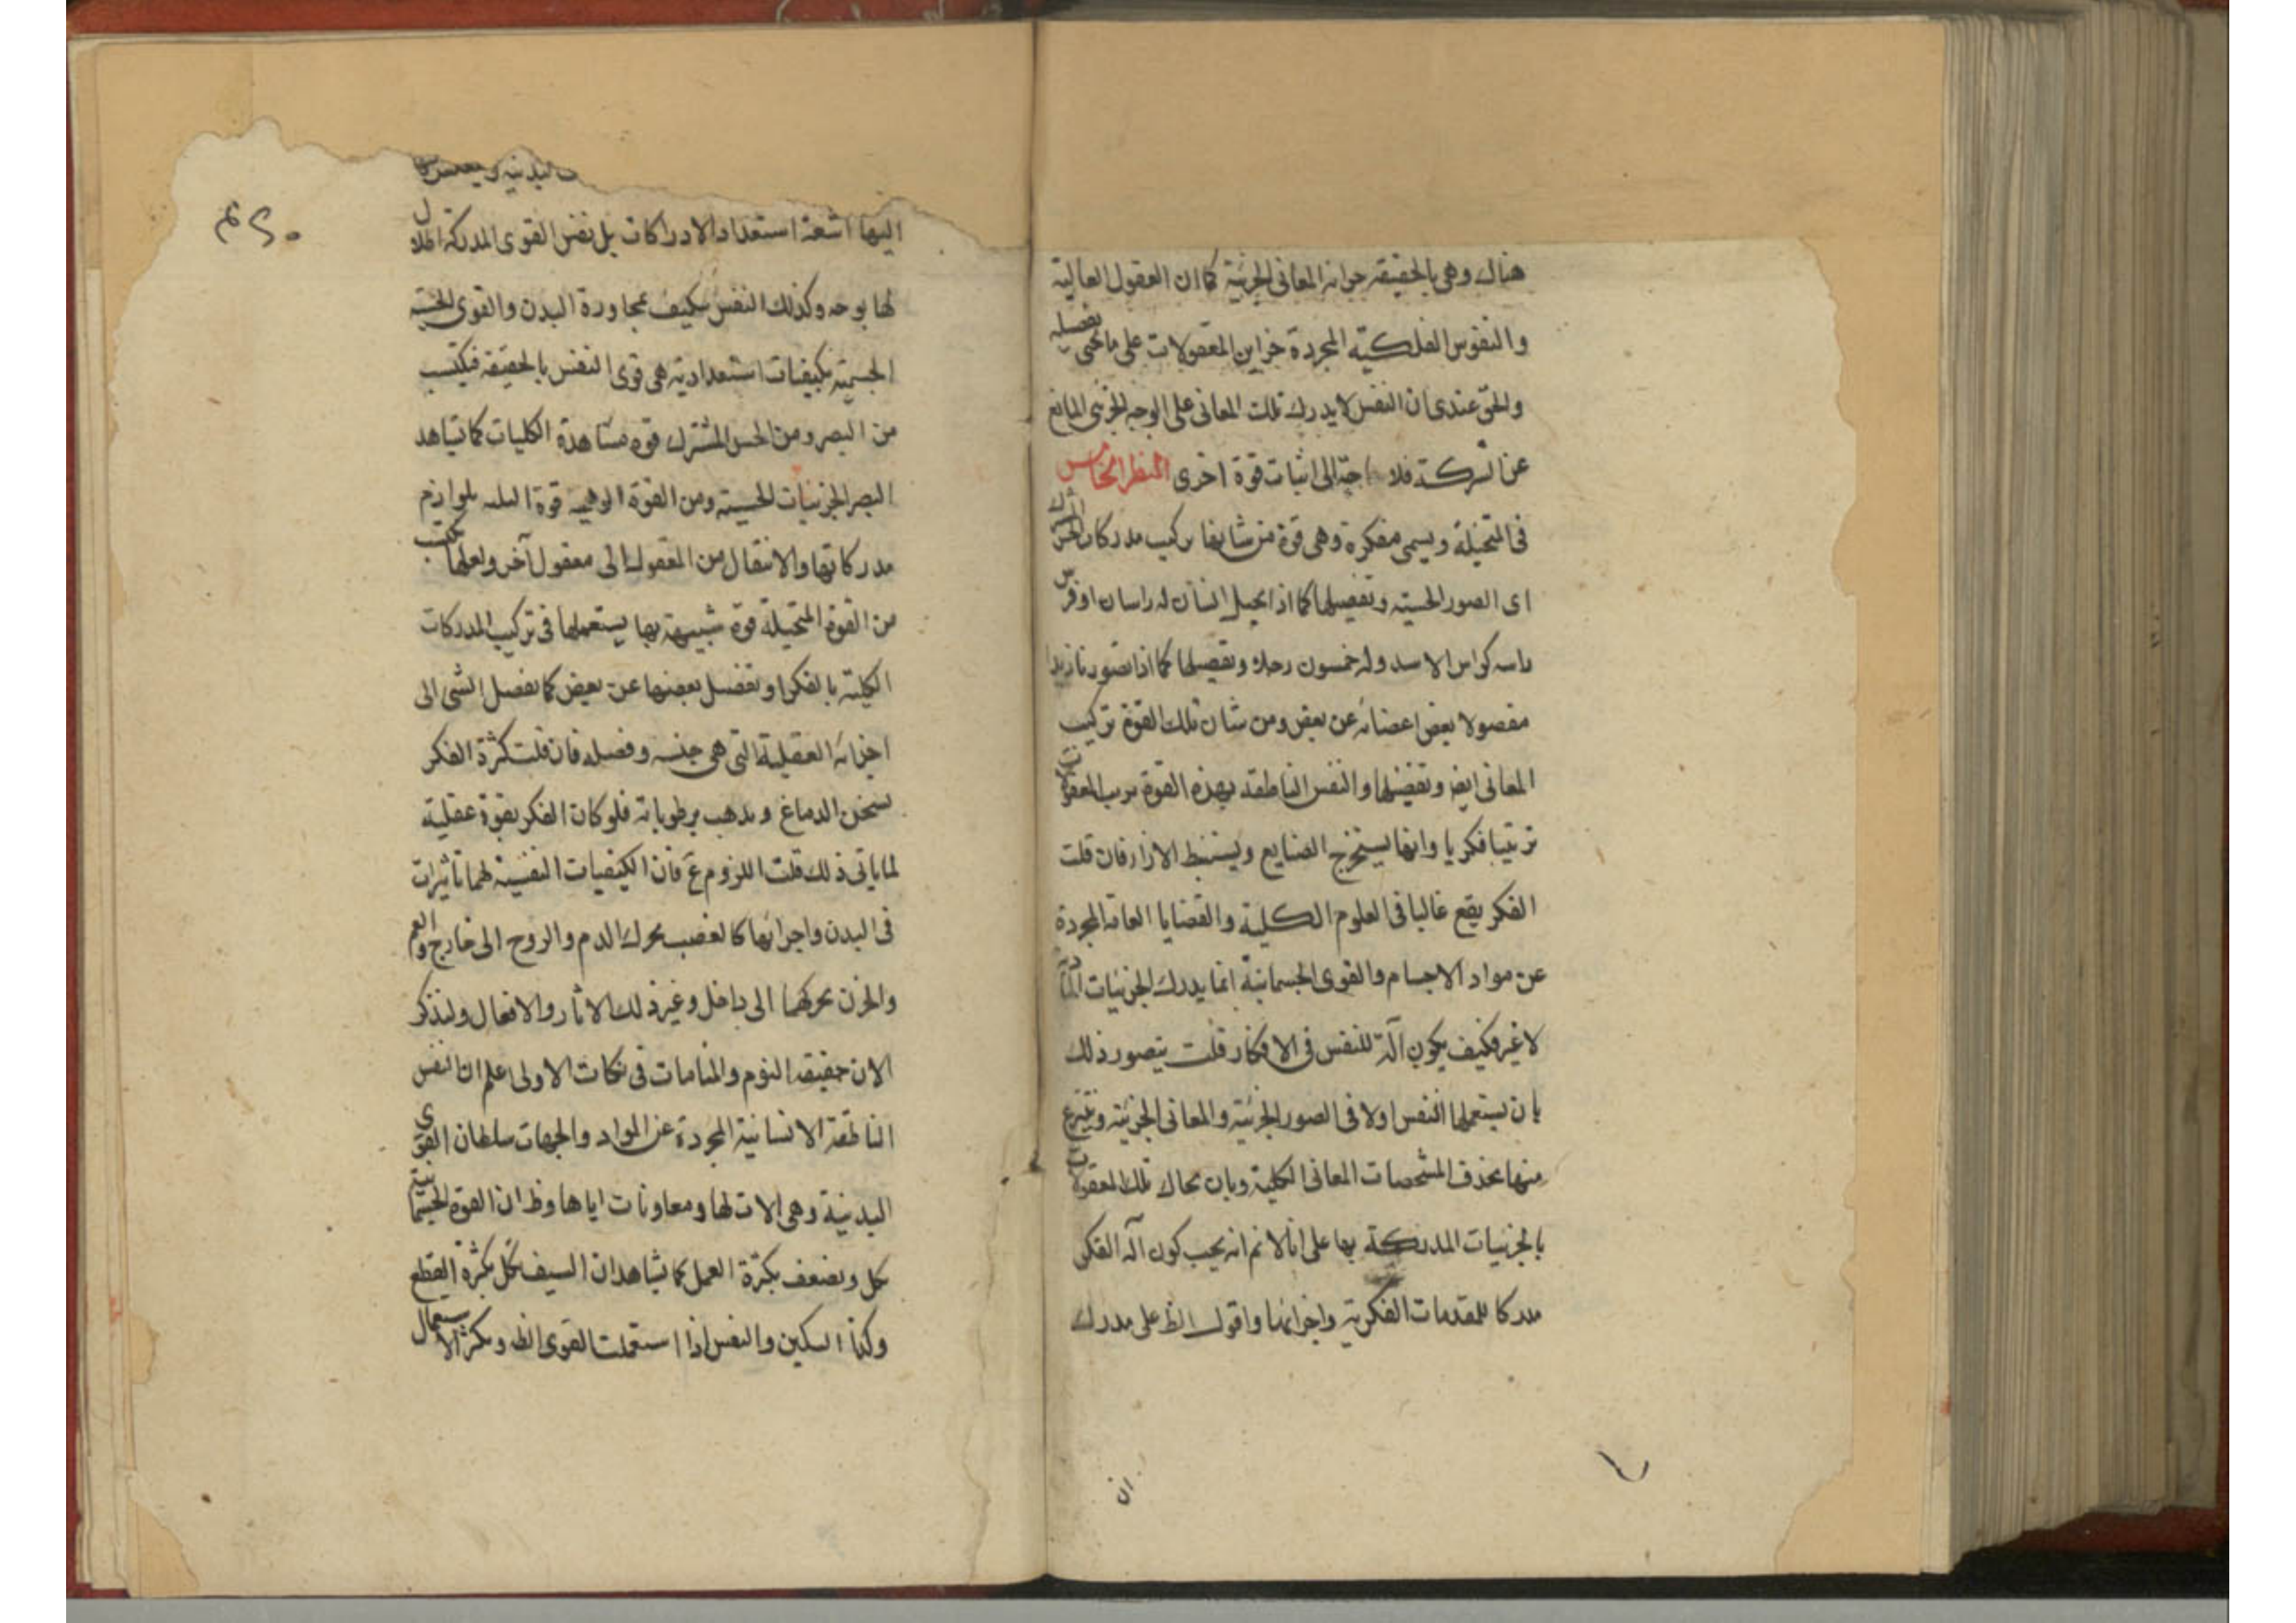 هناك وهى بالحقيقه خزانه المعانى الجزئية كما ان العقول العالية
والنفوس الفلكية المجردة خزاين المعقولات على ما يحى تفصيله
والحق عندى ان النفس لا يدرك تلك المعانى على الوجه الجزئى المانع
عن الشركة فلا حاجة الى اثبات قوة اخرى المنظر الخامس
فى المتخيلة ويسمى مفكرة وهى قوة من شانها تركيب مدركات الحس المشترك
اى الصور الحسية وتفصيلها كما اذا تخيل انسان له راسان او فرس
راسه كراس الاسد وله خمسون رجلا وتفصيلها كما اذا تصورنا زيدا
مفصولا بعض اعضائه عن بعض ومن شان تلك القوة تركيب
المعانى ايض وتفصيلها والنفس الناطقه بهذه القوة ترتب المعقولات
ترتيبا فكريا وانها يستخرج الصنايع ويستنبط الاراء فان قلت
الفكر يقع غالبا فى العلوم الكلية والقضايا العامة المجردة
عن مواد الاجسام والقوى الجسمانية انما يدرك الجزئيات المادية
لا غير فكيف يكون آلة للنفس فى الافكار قلت يتصور ذلك
بان يستعملها النفس اولا فى الصور الجزئية والمعانى الجزئية وينتزع
منها بحذف المشخصات المعانى الكلية وبان يحاك تلك المعقولات
بالجزئيات المدركة بها على انا لانم انه يجب كون آلة الفكر
مدركا للمقدمات الفكرية واجزائها واقول الظ على مدرك
ان
البدنية و
اليها اشعة استعداد الادراكات بل نفس القوى المدركة
لها بوجه وكذلك النفس يتكيف بمجاورة البدن والقوى الحسية
الجسمية بكيفيات استعدادية هى قوى النفس بالحقيقة فيكتسب
من البصر ومن الحس المشترك قوة مشاهدة الكليات كما يشاهد
البصر الجزئيات الحسية ومن القوة الوهمية قوة بلوازم
مدركاتها والانتقال من المعقول الى معقول آخر ولعلها تكتسب
من القوة المتخيلة قوة شبيهة بها يستعملها فى تركيب المدركات
الكلية بالفكر او تفصيل بعضها عن بعض كما يفصل الشئ الى
اجزائه العقلية التى هى جنسه وفصله فان قلت كثرة الفكر
يسخن الدماغ ويذهب برطوباته فلو كان الفكر بقوة عقلية
لما ياتى ذلك قلت اللزوم مم فان الكيفيات النفسية لهما تاثيرات
فى البدن واجزائها كالغضب يحرك الدم والروح الى خارج والغم
والحزن يحركهما الى داخل وغير ذلك الاثار والافعال ولنذكر
الان حقيقه النوم والمنامات فى نكات الاولى اعلم ان النفس
الناطقة الانسانية المجردة عن المواد والجهات سلطان القوى
البدنية وهى الات لها ومعاونات اياها وظ ان القوة الجسمانية
تكل وتضعف بكثرة العمل كما يشاهد ان السيف يكل بكثرة القطع
وكذا السكين والنفس اذا استعملت القوى الظ وبكثر الاستعمال